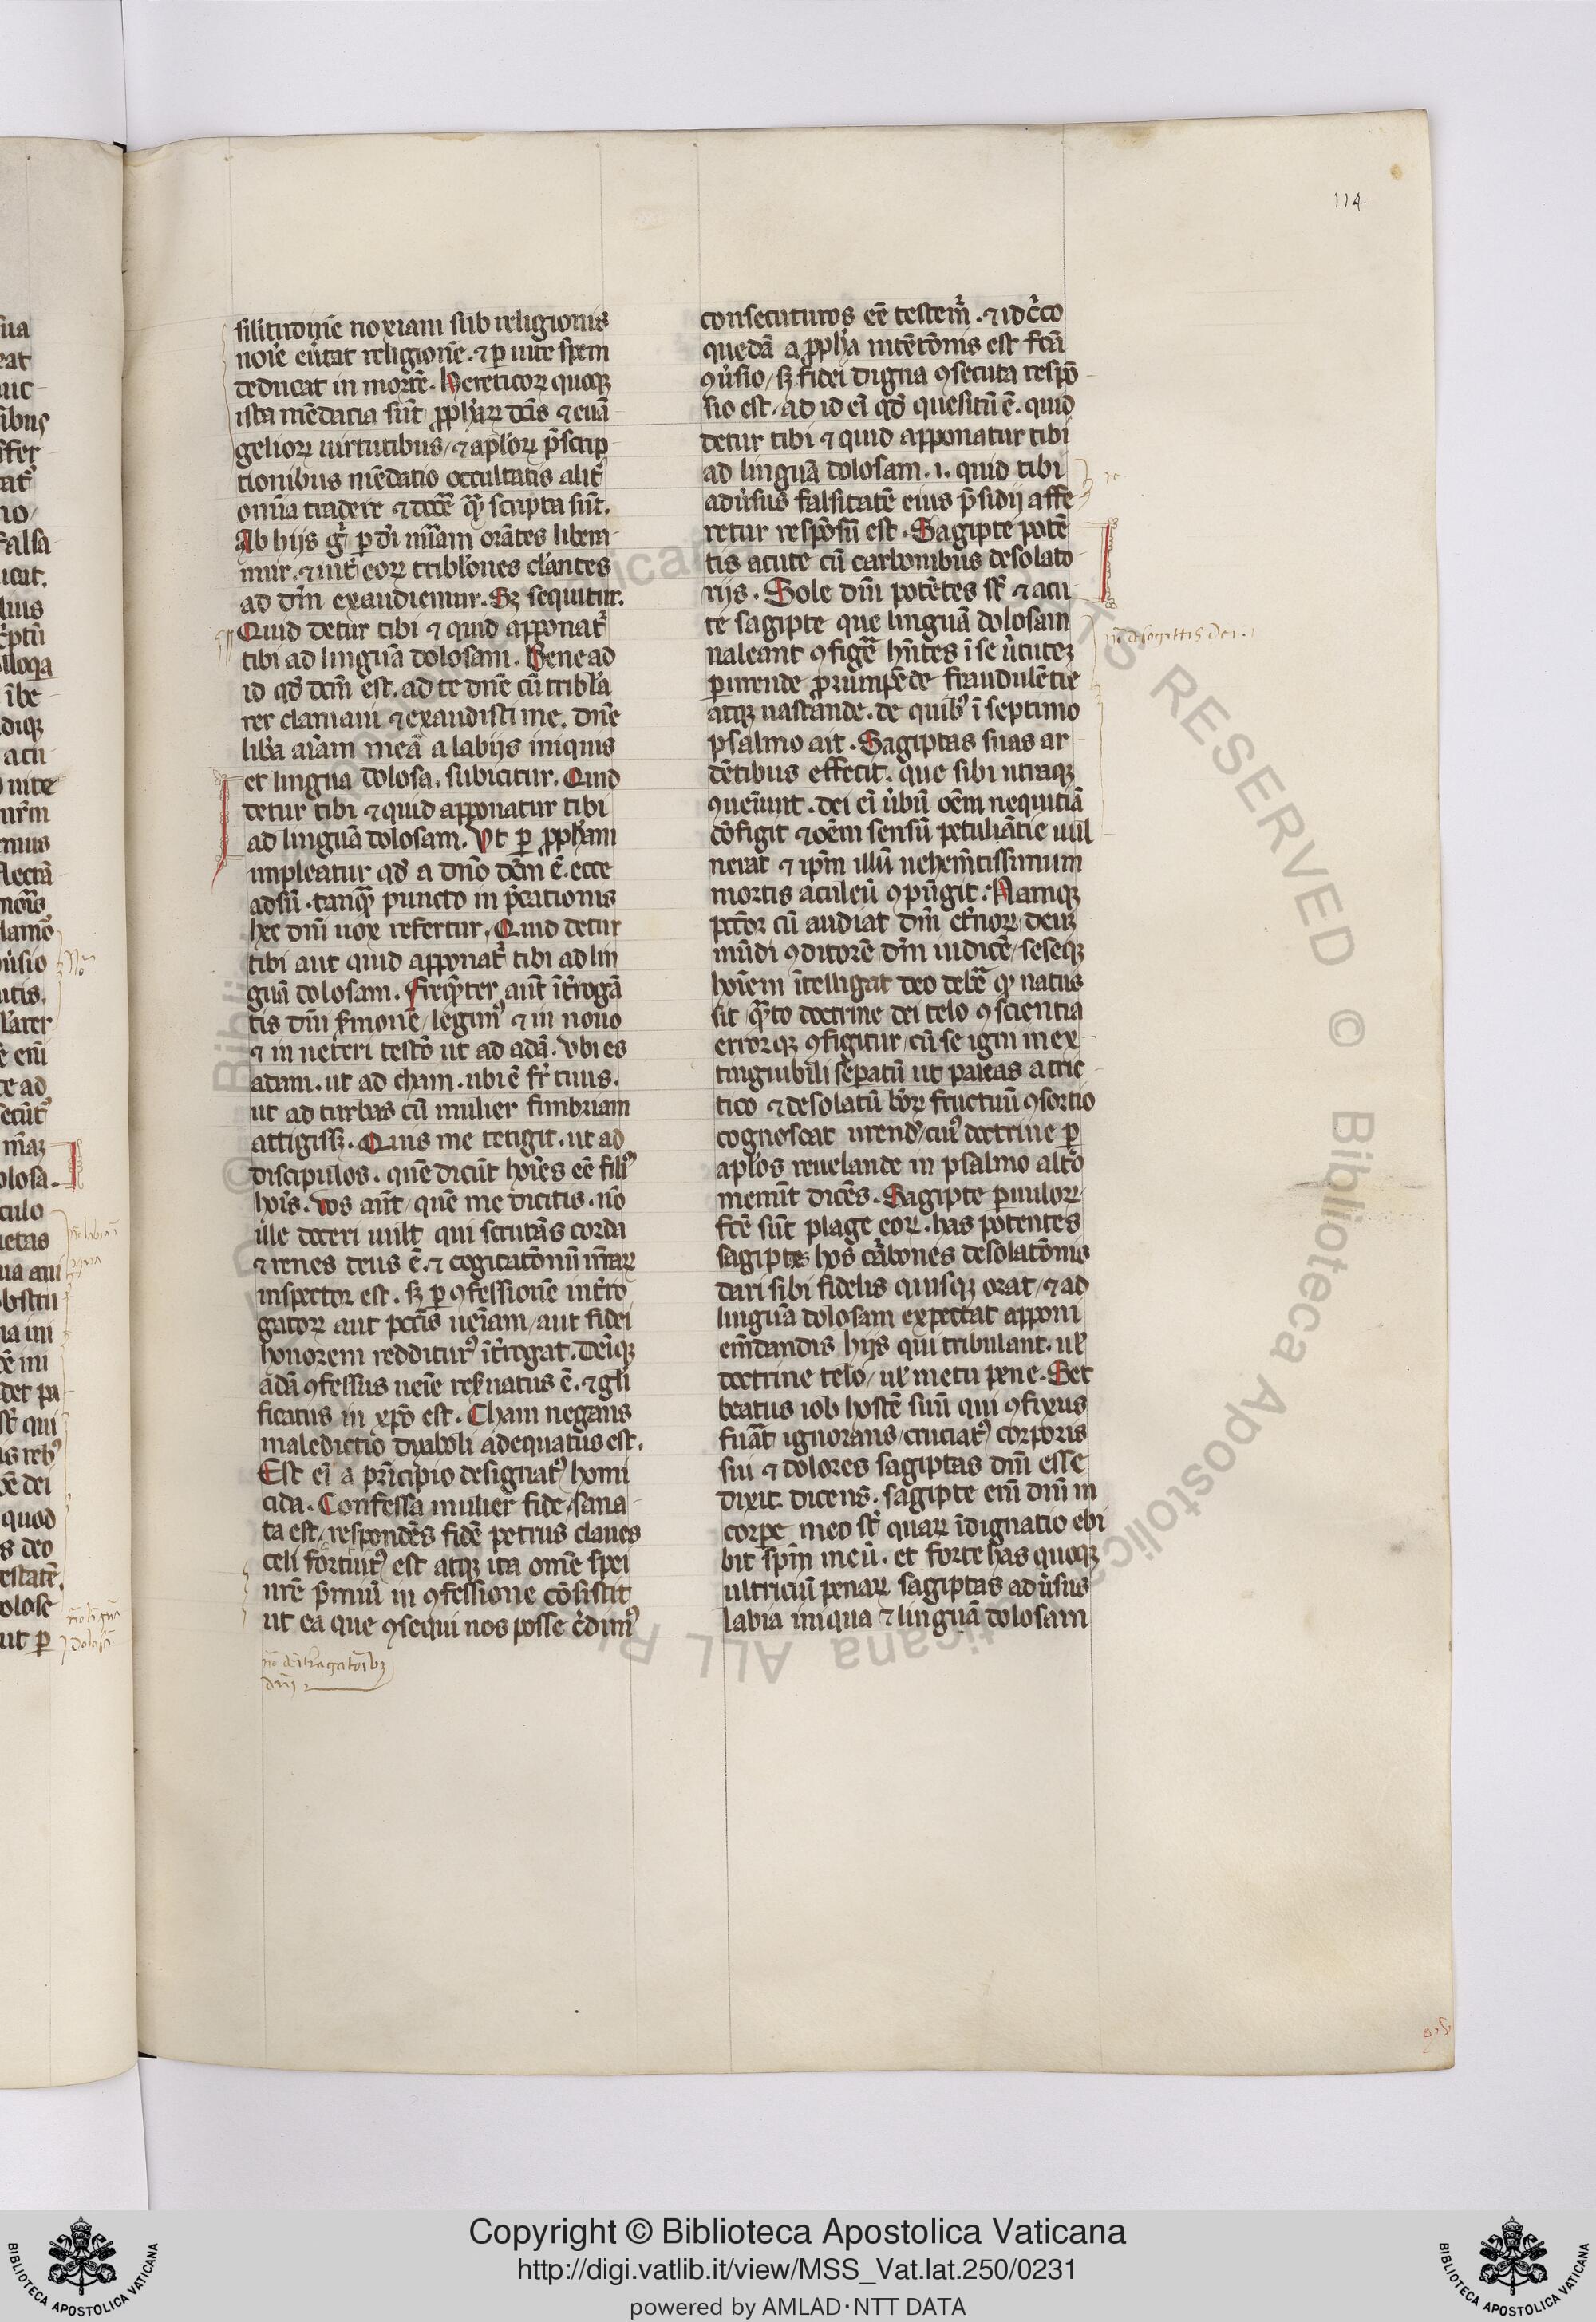 114
silitudinē noxiam sub religionis
noīe eūtat religionē. ⁊ ꝑ uite spem
deducat in mortē. Hereticoꝝ quoqꝫ
ista mēdatia sūt, ꝓph̄aꝝ dc̄is ⁊ euā
gelioꝝ uirtutibus / ⁊ apl̄oꝝ p̄scrip
tionibus mēdatio occultatis alit̄
om̄ia tradere ⁊ docē̄ qm̄ scripta sūt.
Ab hijs g̊ ꝑ di mīam orātes libem
mur. ⁊ int̄ eoꝝ tribl̄ones clātes
ad dm̄ exaudiemur. Sꝫ sequitur.
Quid detur tibi ⁊ quid apponat̄
tibi ad linguā dolosam. Bene ad
id qd̄ dcm̄ est. ad te dnē cū tribl̄a
rer clamaui ⁊ exaudisti me. dnē
libā aīam meā a labijs iniquis
et lingua dolosa. subicitur. Quid
detur tibi ⁊ quid apponatur tibi
ad linguā dolosam. Vt ꝑ ꝓph̄am
impleatur qd̄ a dn̄o dcm̄ ē. ecce
adsū. tanqᷓ puncto in p̄cationis
hec dn̄i uox refertur. Quid detur
tibi aut quid apponat̄ tibi ad lin
guā dolosam. Freqn̄ter aūt īt̄rogā
tis dn̄i ẜmonē / legimꝰ ⁊ in nouo
⁊ in ueteri testō ut ad adā. Vbi es
adam. ut ad cham. ubi ē fr̄ tuus.
ut ad turbas cū mulier fimbriam
attigissꝫ. Quis me tetigit. ut ad
discipulos. quē dicūt hoīes eē filiꝰ
hoīs. Vos aūt / quē me dicitis. nō
ille doceri uult qui scrutās corda
⁊ renes deus ē. ⁊ cogitatōnū nr̄aꝝ
inspector est. sꝫ ꝑ ꝯfessionē int̄ro
gatoꝝ aut pctīs ueīam / aut fidei
honorem redditurꝰ īt̄rogat. Deīqꝫ
adā ꝯfessus ueīe reẜuatus ē. ⁊ gl̄i
ficatus in xp̄o est. Cham negans
maledictio dyaboli adequatus est.
Est eī a prīcipio designatꝰ homi
cida. Confessa mulier fide / sana
ta est / respondēs fidē petrus claues
celi fortiuitꝰ est atqꝫ ita omē spei
nr̄e p̄miū in ꝯfessione cōsistit
ut ea que ꝯsequi nos posse c̄dimꝰ
consecuturos eē testem̄. ⁊ idc̄co
quedā a ꝓph̄a intētōnis est fc̄ā
ꝯūsio / sꝫ fidei digna ꝯsecuta respō
sio est. ad id eī qd̄ quesitū ē. quid
detur tibi ⁊ quid apponatur tibi
ad linguā dolosam. i. quid tibi
adūsus falsitatē eius p̄sidij affe
retur respōsū est. Sagipte potē
tis acute cū carbonibus desolato
rijs. Sole dn̄i potētes st̄ ⁊ acu
te sagipte que linguā dolosam
ualeant ꝯfigē̄ hn̄tes ī se ūtuteꝫ
ꝑurende ꝓrumpēde fraudulētie
atqꝫ uastande. de quibꝰ ī septimo
psalmo ait. Sagiptas suas ar
dētibus effecit. que sibi utraqꝫ
ꝯueīunt. dei eī ūbū oēm nequitiā
cōfigit ⁊ oēm sensū petulātie uul
nerat ⁊ ipm̄ illū uehemētissimum
mortis aculeū ꝯpūgit. Namqꝫ
pctōr cū audiat dm̄ et̄noꝝ / deuꝫ
mūdi ꝯditorē / dm̄ iudicē / seseqꝫ
hoīem ītelligat deo debē̄ qꝫ natus
sit / qᷓto doctrine dei telo ꝯscientia
errorqꝫ ꝯfigitur / cū se igni inex
tinguibili sepatū ut paleas a tric
tico ⁊ desolatū boꝝ fructuū ꝯsortio
cognoscat urendꝰ / cuiꝰ doctrine ꝑ
apl̄os reuelande in psalmo altō
memīt dicēs. Sagipte ꝑuuloꝝ
fcē sūt plage eoꝝ. has potentes
sagiptas hos c̄bones desolatōnis
dari sibi fidelis quisqꝫ orat / ⁊ ad
linguā dolosam expectat apponi
em̄dandis hijs qui tribulant. ul̄
doctrine telo / ul̄ metu pene. Set
beatus iob hostē suū qui ꝯfixus
fuāt ignorans / cruciatꝰ corporis
sui ⁊ dolores sagiptas dn̄i esse
dixit. dicens. sagipte enī dn̄i in
corpe meo st̄ quaꝝ īdignatio ebi
bit spm̄ meū. et forte has quoqꝫ
ultriciū penaꝝ sagiptas adūsus
labia iniqua ⁊ linguā dolosam
nō de sagittis dei
nō de ītr̄rogatōibꝫ
dnī
Copyright © Biblioteca Apostolica Vaticana
http://digi.vatlib.it/view/MSS_Vat.lat.250/0231
powered by AMLAD·NTT DATA
BIBLIOTECA APOSTOLICA VATICANA
BIBLIOTECA APOSTOLICA VATICANA